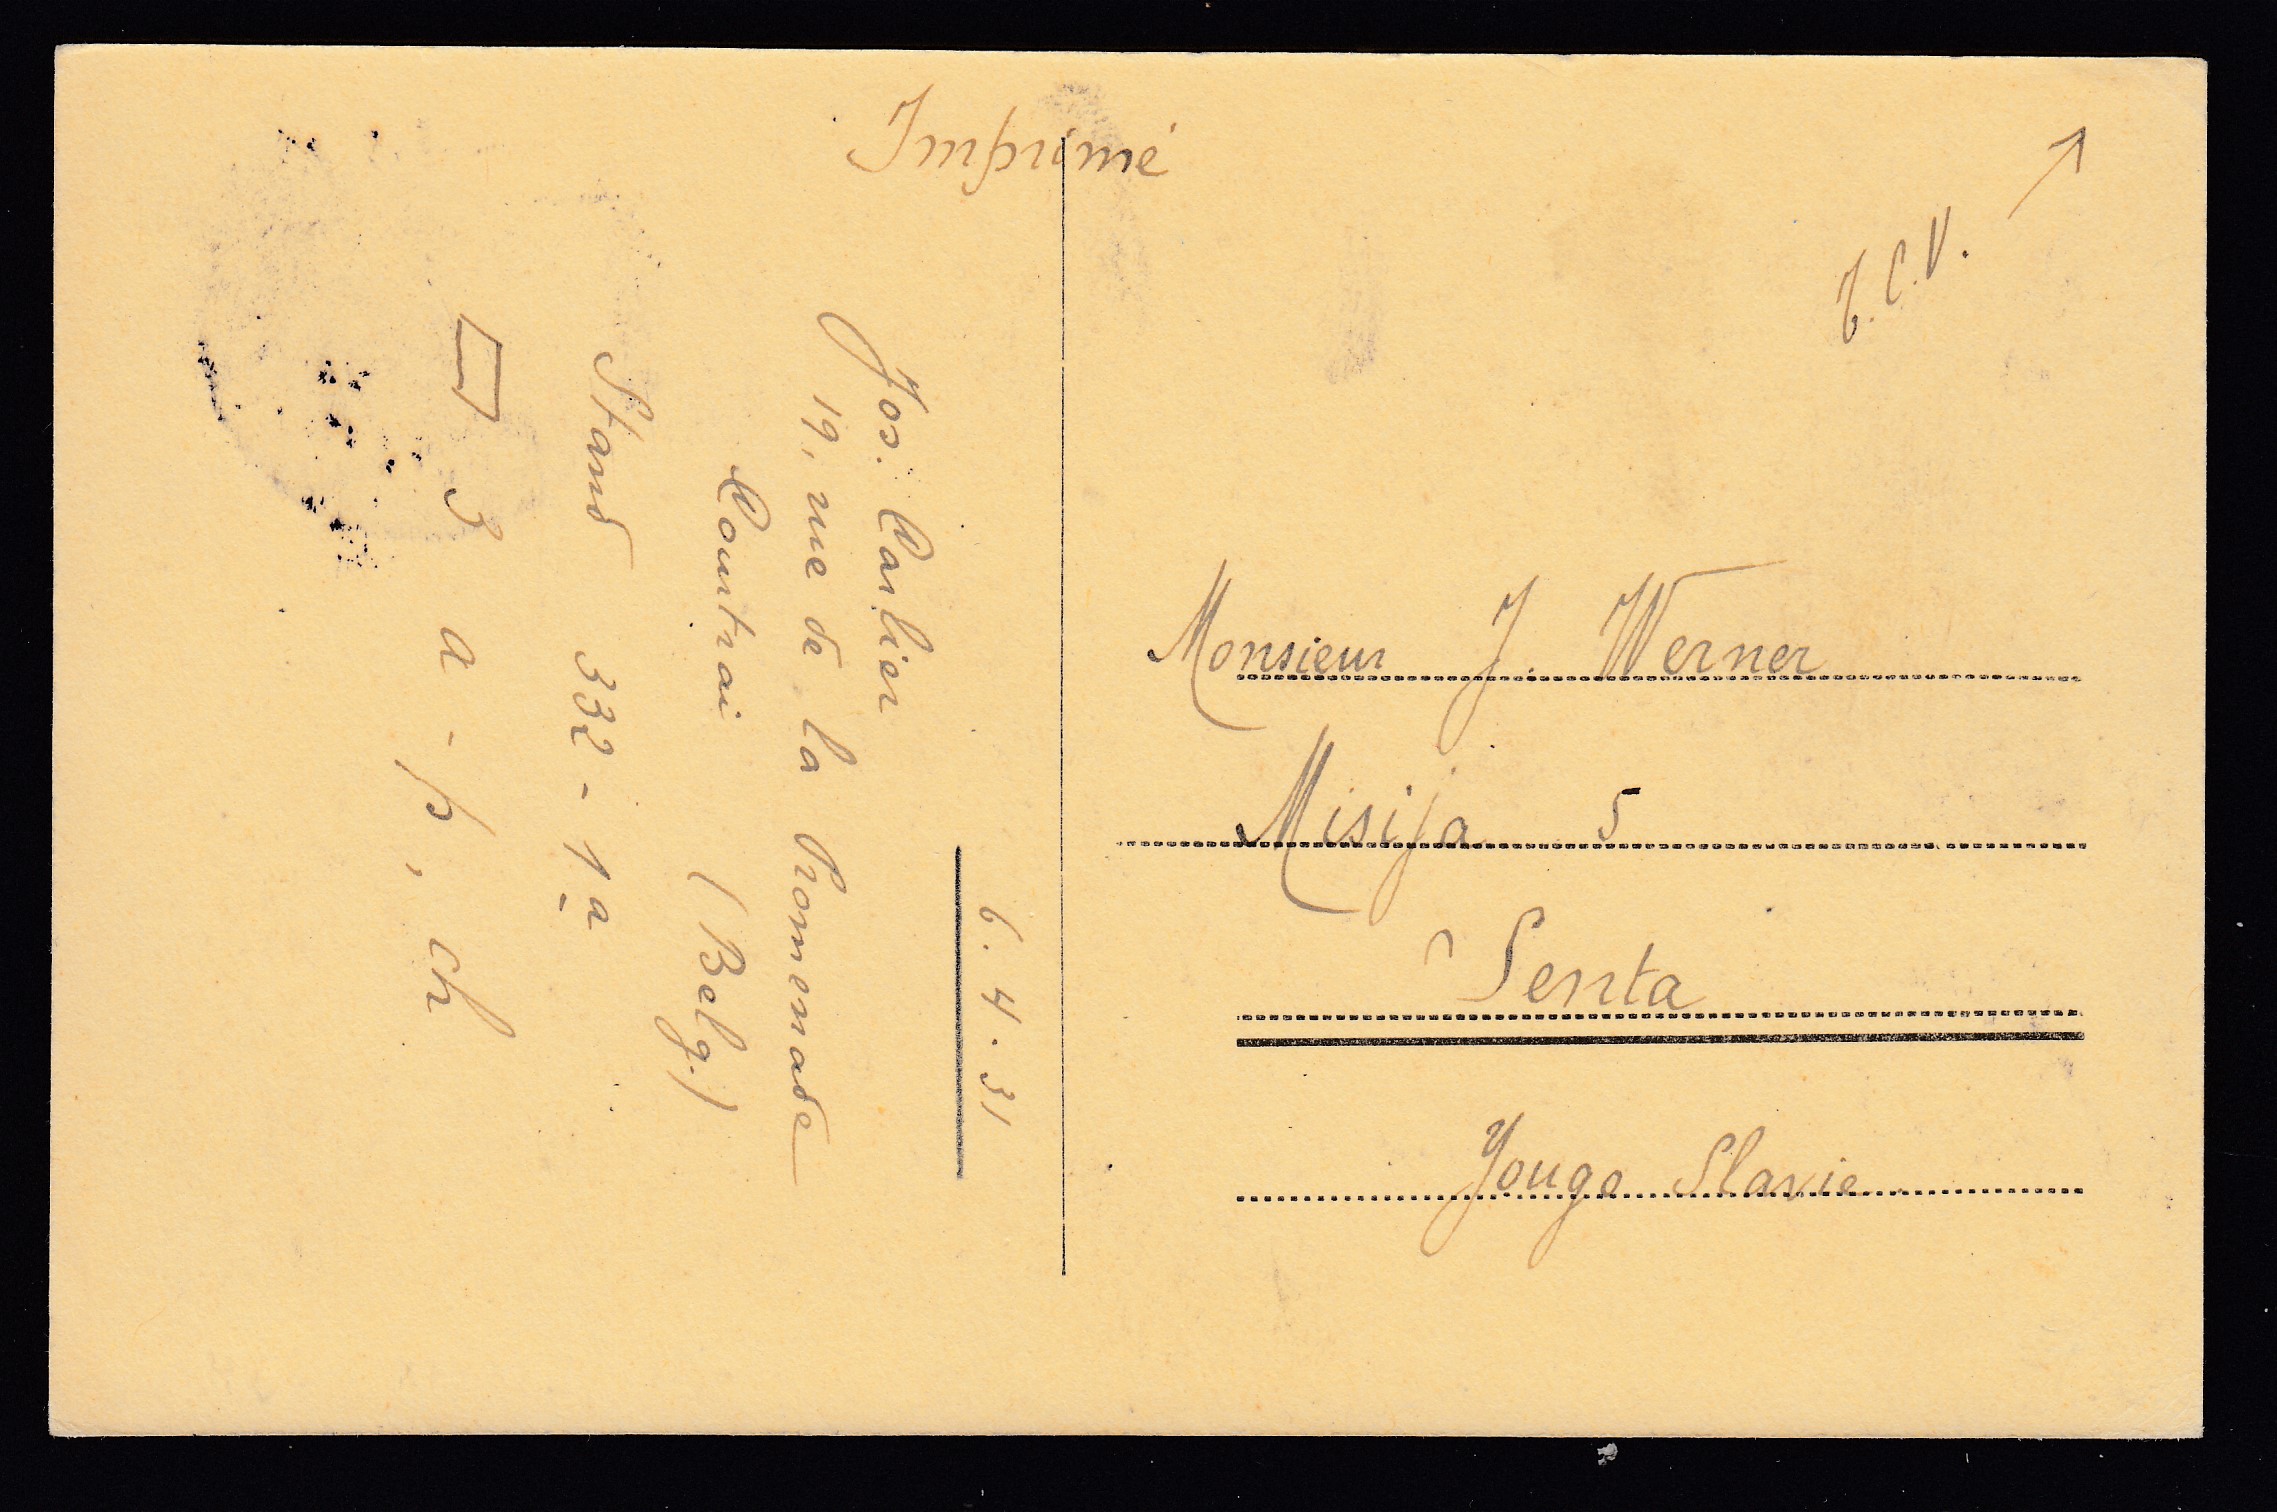 Imprimé
T.C.V.
Monsieur J. Werner
Misija 5
Senta
Yougo Slavie
6.4.31
Jos. Carlier
19, rue de la Promenade
Courtrai (Belg.)
Stand 332 - 1a
3 a - p, ch